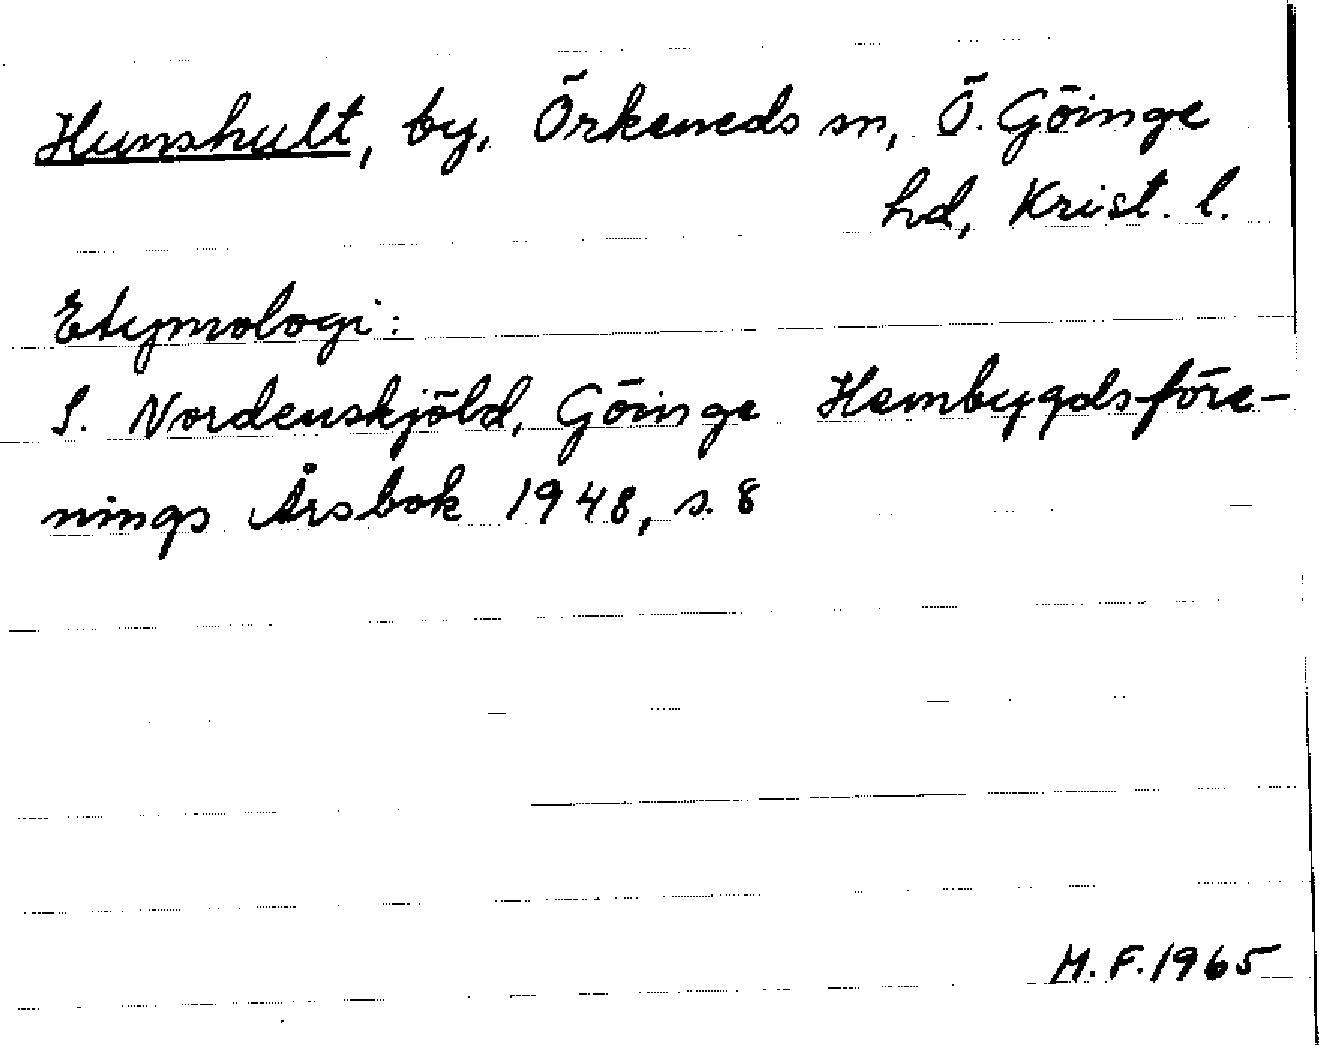 Hunshult, by, Örkeneds sn, Ö. Göinge
hd, Krist. l.
Etymologi:
S. Nordenskjöld, Göinge Hembygdsföre-
nings Årsbok 1948, s. 8
M.F. 1965